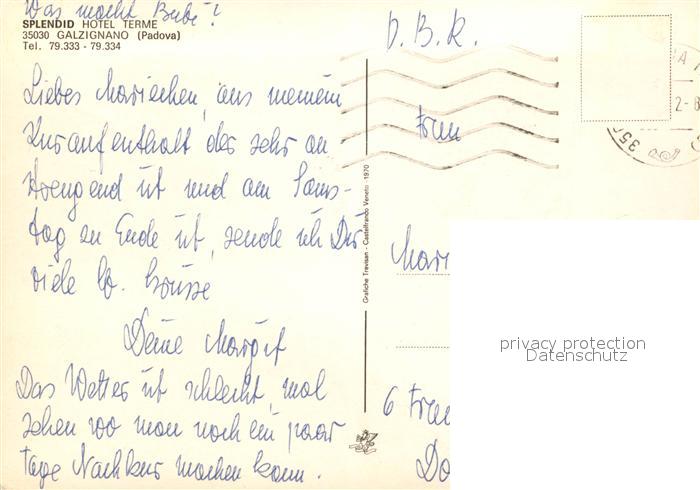 Was macht Bubi?
SPLENDID HOTEL TERME
35030 GALZIGNANO (Padova)
Tel. 79.333 - 79.334
Liebes Mariechen, aus meinem
Kuraufenthalt der sehr an
strengend ist und am Sams-
tag zu Ende ist, sende ich Dir
viele lb. Grüsse
Deine Margit
Das Wetter ist schlecht, mal
sehen wo man noch ein paar
tage Nachkur machen kann.
Grafiche Trevisan - Castelfranco Veneto - 1970
D.B.R.
Frau
Mari
6 Fran
Do
350
2-8
privacy protection
Datenschutz